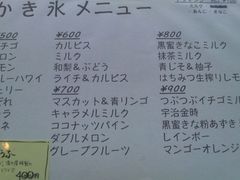 かき氷メニュー
500
¥600
¥800
チゴ
カルピス
黒蜜きなこミルク
ロン
ミルク
抹茶ミルク
モン
和梨&ぶどう
青じそ&柚子
ルーハワイ
ライチ&カルピス
はちみつ生搾りレモン
ェリー
¥700
¥900
ぞれ
マスカット&青リンゴ
つぶつぶイチゴミルク
キウイパイン
宇治金時
ネ
ココナッツパイン
黒蜜きな粉あずきミ
ダブルメロン
レインボー
グレープフルーツ
マンゴーオレンジ
400円